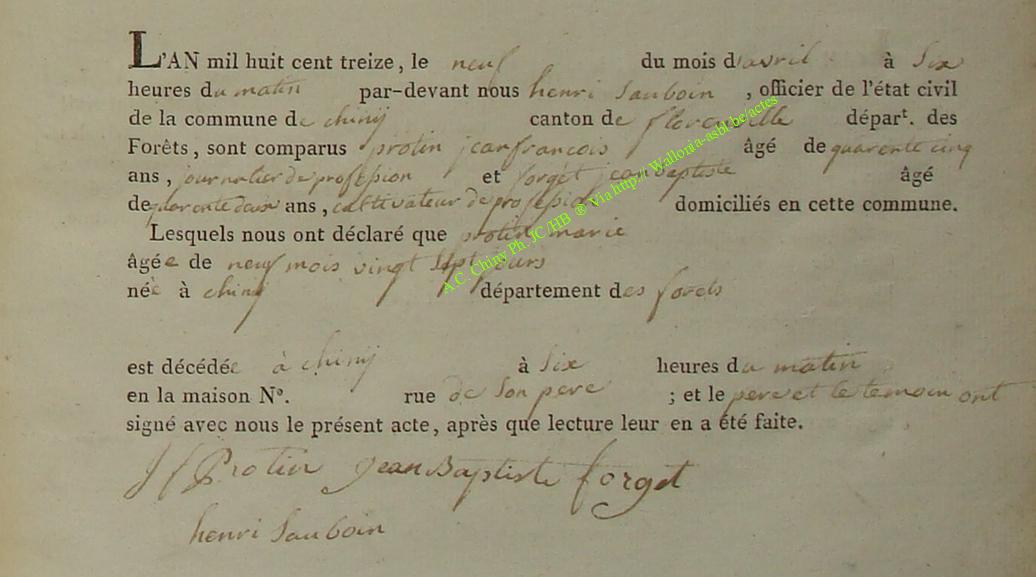 L'AN mil huit cent treize, le neuf du mois d'avril à Six
heures du matin par-devant nous henri Sauboin, officier de l'état civil
de la commune de chinÿ canton de florenville départ. des
Forêts, sont comparus protin jean francois âgé de quarente cinq
ans, journalier de profession et forget jean baptiste âgé
de quarente deux ans, cultivateur de profession domiciliés en cette commune.
Lesquels nous ont déclaré que protin marie
âgée de neuf mois vingt sept jours
née à chinÿ département des forets
est décédée à chinÿ à Six heures du matin
en la maison N°. rue de Son pere ; et le pere et le temoin ont
signé avec nous le présent acte, après que lecture leur en a été faite.
J f Protin Jean Baptiste forget
henri Sauboin
A.C. Chiny Ph. JC /HB ® Via http:// Wallonia-asbl.be/actes